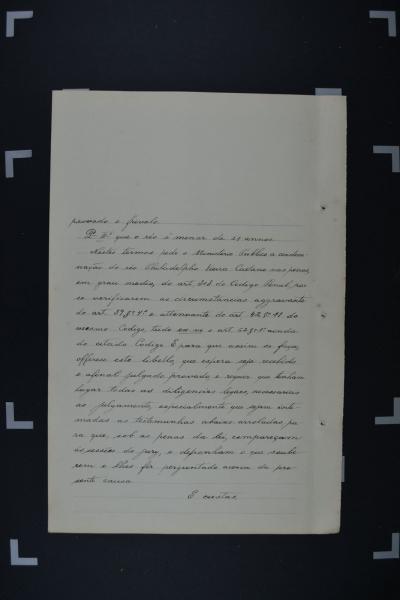 provado e frivolo
P. II° que o réo é menor de 21 annos.
Nestes termos pede o Ministerio Publico a condem-
nação do réo Philadelpho Vieira Caetano nas penas,
em grau medio, do art. do Codigo Penal, por
se verificarem as circumstancias aggravante
do art. 39, § 4° e attenuante do art. 42, § 11 do
mesmo Codigo, tendo em o art. 62 § 1° ainda
do citado Codigo. E para que assim se faça,
offerece este libello, que espera seja recebido
e afinal julgado provado, e requer que tenham
lugar todas as diligencias legaes, necessarias
ao julgamento, especialmente que sejam inti-
madas as testemunhas abaixo arroladas pa-
ra que, sob as penas da lei, compareçam
ás sessões do jury, e deponham o que soube-
rem e lhes for perguntado acerca da pre-
sente causa.
E custas